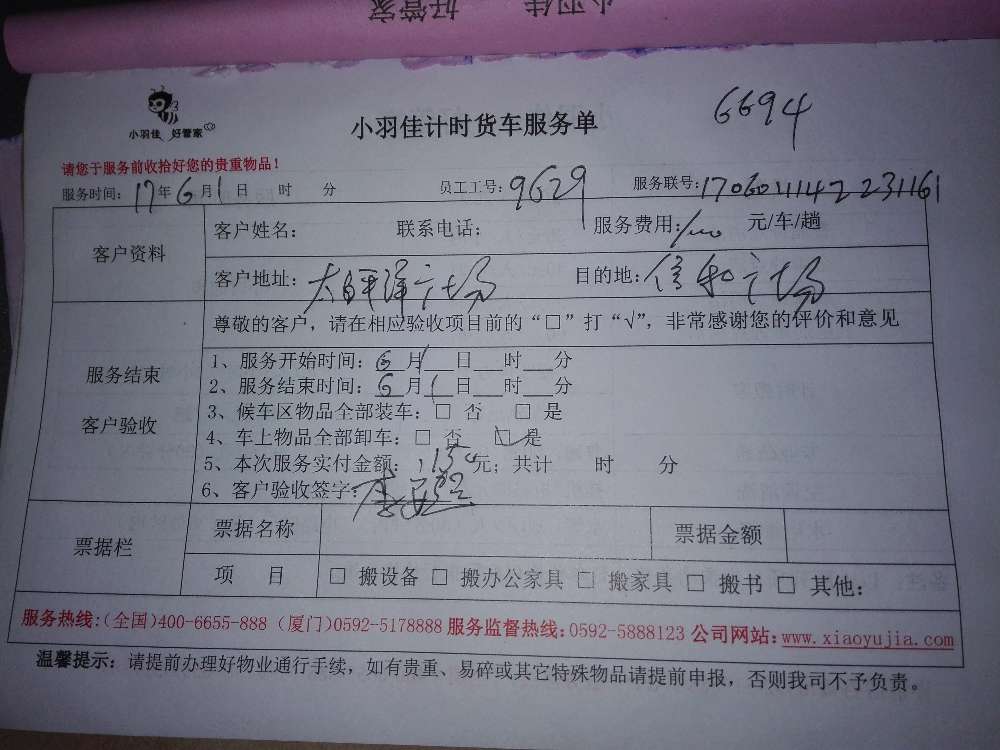 小羽佳 好管家
小羽佳 好管家
小羽佳计时货车服务单
6694
请您于服务前收拾好您的贵重物品！
服务时间：17年6月1日 时 分 员工工号：9629 服务联号：
客户资料
客户姓名： 联系电话： 服务费用： 元/车/趟
客户地址：太平洋广场 目的地：信和广场
服务结束
客户验收
尊敬的客户，请在相应验收项目前的“□”打“√”，非常感谢您的评价和意见
1、服务开始时间：6月1日___时___分
2、服务结束时间：6月1日___时___分
3、候车区物品全部装车：□ 否 □ 是
4、车上物品全部卸车：□ 否 ☑ 是
5、本次服务实付金额：150元；共计 时 分
6、客户验收签字：
票据栏
票据名称 票据金额
项 目 □ 搬设备 □ 搬办公家具 □ 搬家具 □ 搬书 □ 其他：
服务热线：(全国)400-6655-888 (厦门)0592-5178888 服务监督热线：0592-5888123 公司网站：www.xiaoyujia.com
温馨提示：请提前办理好物业通行手续，如有贵重、易碎或其它特殊物品请提前申报，否则我司不予负责。